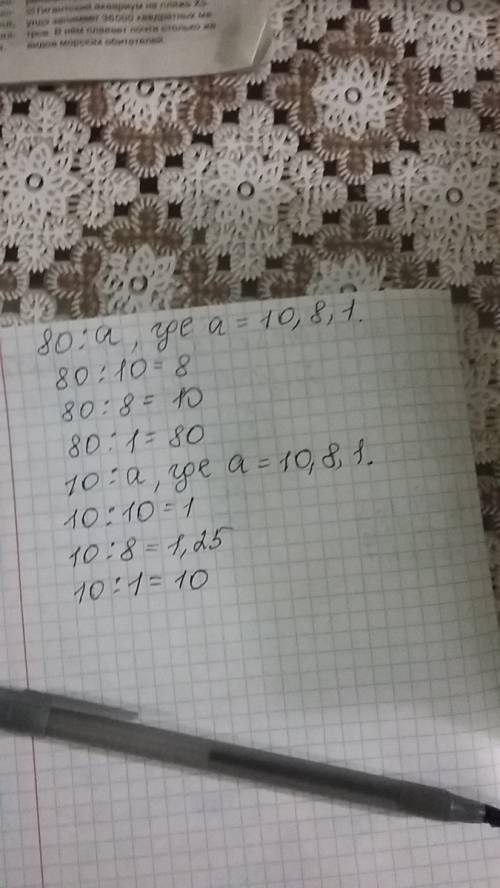 Гигантский аквариум на пляже Ха-
занимает 36000 квадратных ме-
тров. В нём плавает почти столько же
видов морских обитателей.
80 : а, где а = 10, 8, 1.
80 : 10 = 8
80 : 8 = 10
80 : 1 = 80
10 : а, где а = 10, 8, 1.
10 : 10 = 1
10 : 8 = 1,25
10 : 1 = 10